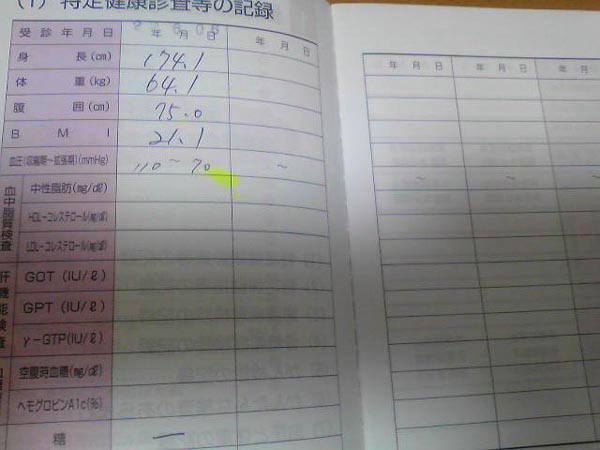 (1) 特定健康診査等の記録
受診年月日 年 月 日 年 月 日
身長(cm) 174.1
体重(kg) 64.1
腹囲(cm) 75.0
BMI 21.1
血圧(収縮期〜拡張期)(mmHg) 110〜70 〜
血中脂質検査
中性脂肪(mg/dℓ)
HDL-コレステロール(mg/dℓ)
LDL-コレステロール(mg/dℓ)
肝機能検査
GOT(IU/ℓ)
GPT(IU/ℓ)
γ-GTP(IU/ℓ)
空腹時血糖(mg/dℓ)
ヘモグロビンA1c(%)
糖 ー
年 月 日 年 月 日 年
〜 〜 〜